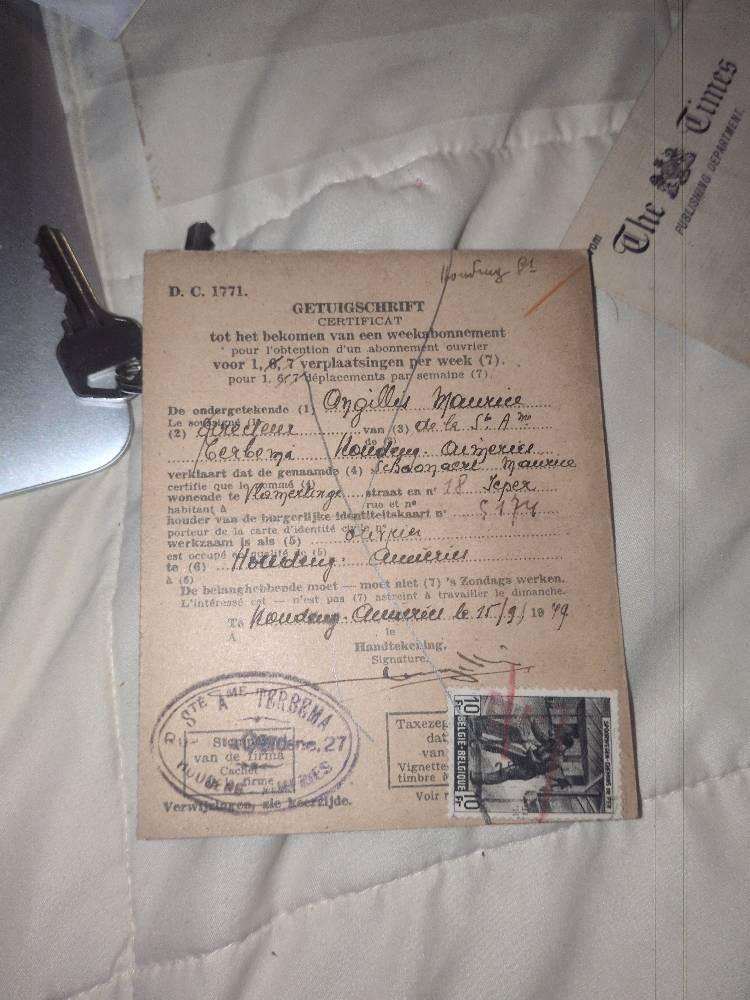 The Times
PUBLISHING DEPARTMENT
D. C. 1771.
GETUIGSCHRIFT
CERTIFICAT
tot het bekomen van een weekabonnement
pour l'obtention d'un abonnement ouvrier
voor 1, 6, 7 verplaatsingen per week (7).
pour 1. 6. 7 déplacements par semaine (7).
De ondergetekende (1) Angillis Maurice
Le soussigné
(2) directeur van (3) de la Sté Ame
Terbema Houdeng-Aimeries
verklaart dat de genaamde (4) Schoonaert Maurice
certifie que le nommé (4)
wonende te Vlamertinge straat en n° 18 Ieper
habitant à rue et n°
houder van de burgerlijke identiteitskaart n° 5174
porteur de la carte d'identité civile n°
werkzaam is als (5) ouvrier
est occupé en qualité de (5)
te (6) Houdeng-Aimeries
à (6)
De belanghebbende moet — moet niet (7) 's Zondags werken.
L'intéressé est — n'est pas (7) astreint à travailler le dimanche.
Te Houdeng-Aimeries le 15/9/1949
A le
Handtekening,
Signature,
STÉ AME TERBEMA
HOUDENG-AIMERIES
Stempel
van de firma
Cachet
firme
Verwijzingen, zie keerzijde.
Taxezeg
dat
van
Vignette
timbre
Voir
10 Fr
BELGIE-BELGIQUE
10 Fr
SPOORWEGEN-CHEMINS DE FER